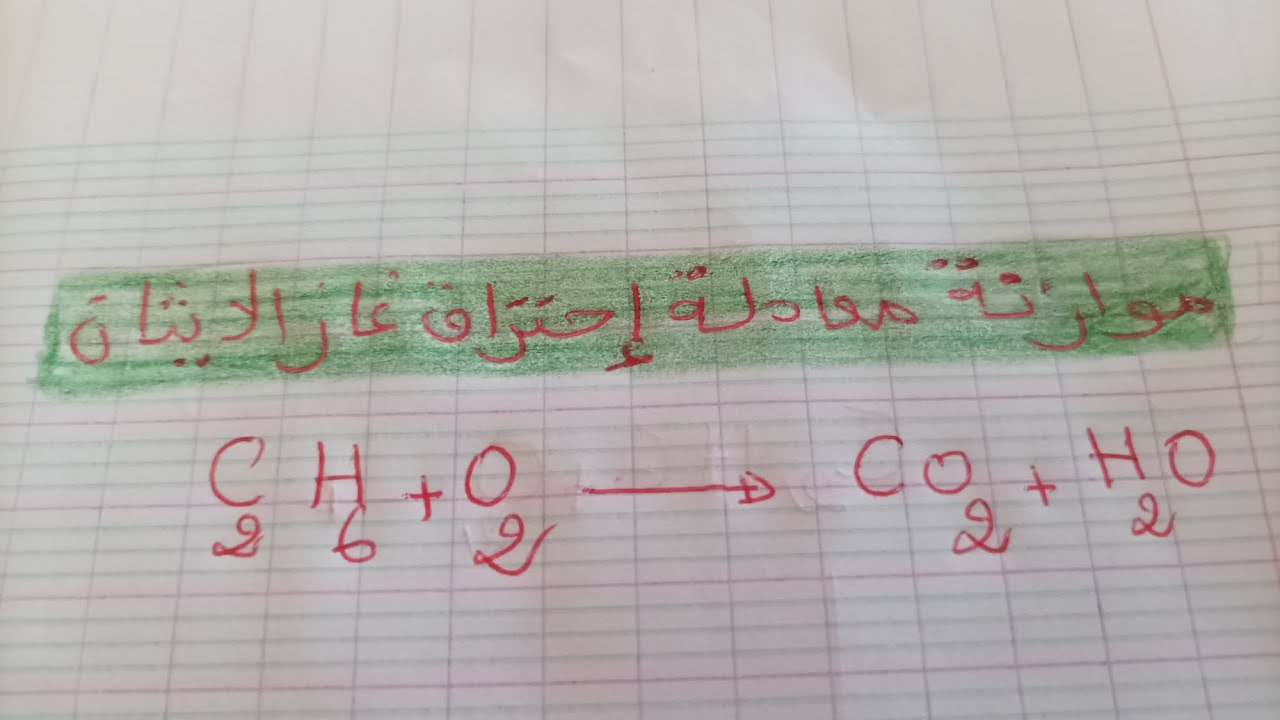 موازنة معادلة إحتراق غاز الايثان
C₂H₆ + O₂ → CO₂ + H₂O